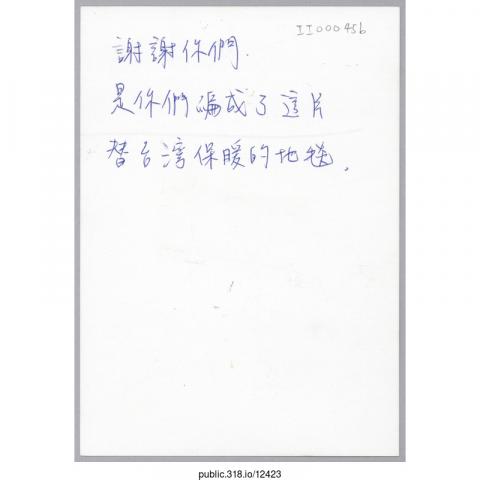 II00045b
謝謝你們.
是你們編成了這片
替台灣保暖的地毯.
public.318.io/12423